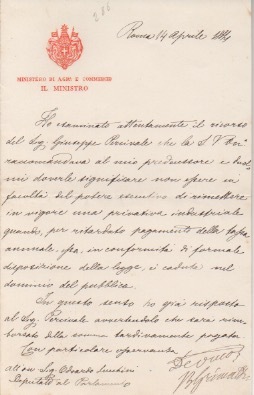 Roma 14 Aprile 188
MINISTERO DI AGRIC. E COMMERCIO
IL MINISTRO
Ho esaminato attentamente il ricorso
del Sig. Giuseppe Percivale che la S. V. On.
raccomandava al mio predecessore e duol
mi doverle significare non essere in
facoltà del potere esecutivo di rimettere
in vigore una privativa industriale
quando, per ritardato pagamento della tassa
annuale, essa, in conformità di formale
disposizione della legge, è caduta nel
dominio del pubblico.
In questo senso ho già risposto
al Sig. Percivale avvertendolo che sarà rim-
borsato della somma tardivamente pagata.
Con particolare osservanza
All'on. Sig. Edoardo
Deputato al Parlamento
Devmo
B Grimaldi